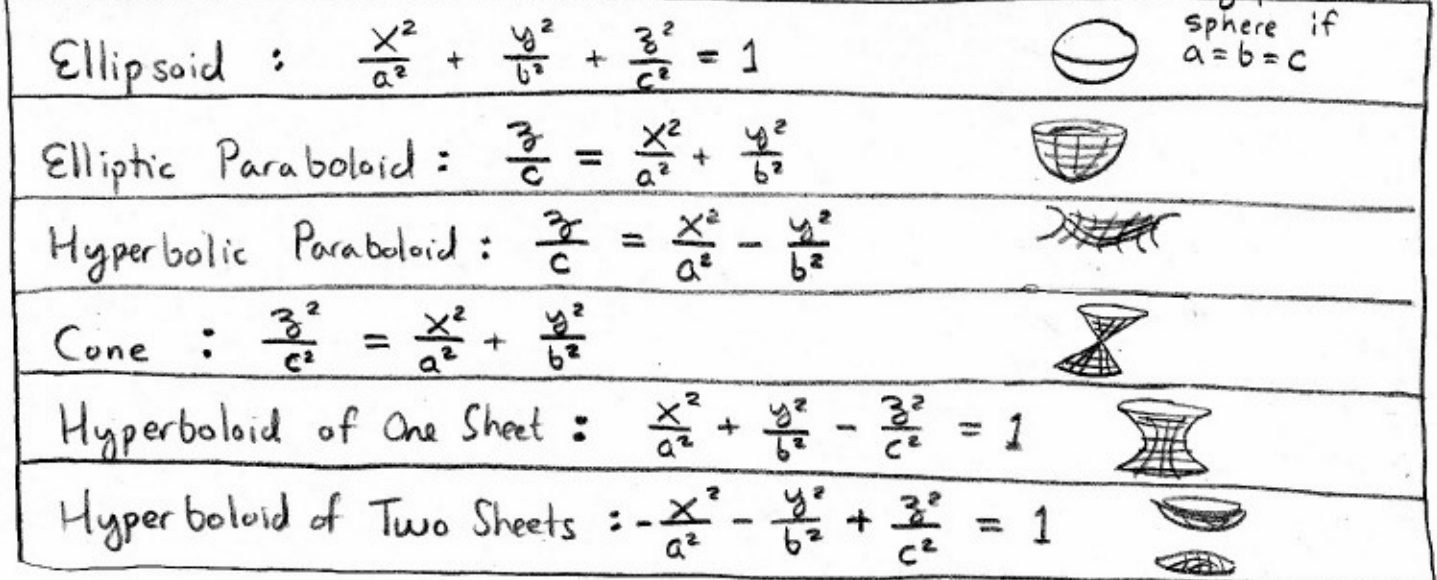 sphere if
a = b = c
Ellipsoid : x²/a² + y²/b² + z²/c² = 1
Elliptic Paraboloid : z/c = x²/a² + y²/b²
Hyperbolic Paraboloid : z/c = x²/a² - y²/b²
Cone : z²/c² = x²/a² + y²/b²
Hyperboloid of One Sheet : x²/a² + y²/b² - z²/c² = 1
Hyperboloid of Two Sheets : -x²/a² - y²/b² + z²/c² = 1